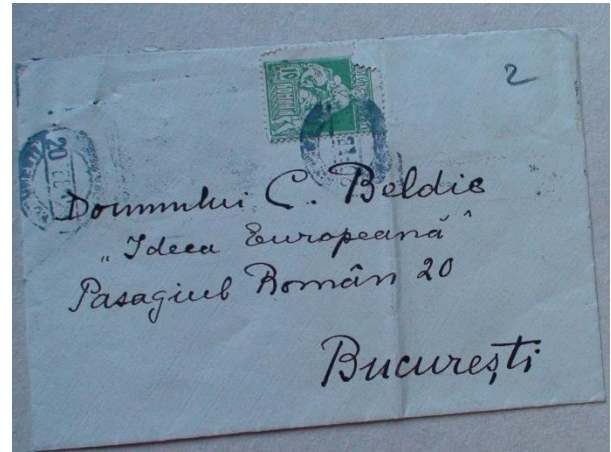 2
20
Domnului C. Beldie
„Ideea Europeană"
Pasagiul Român 20
București